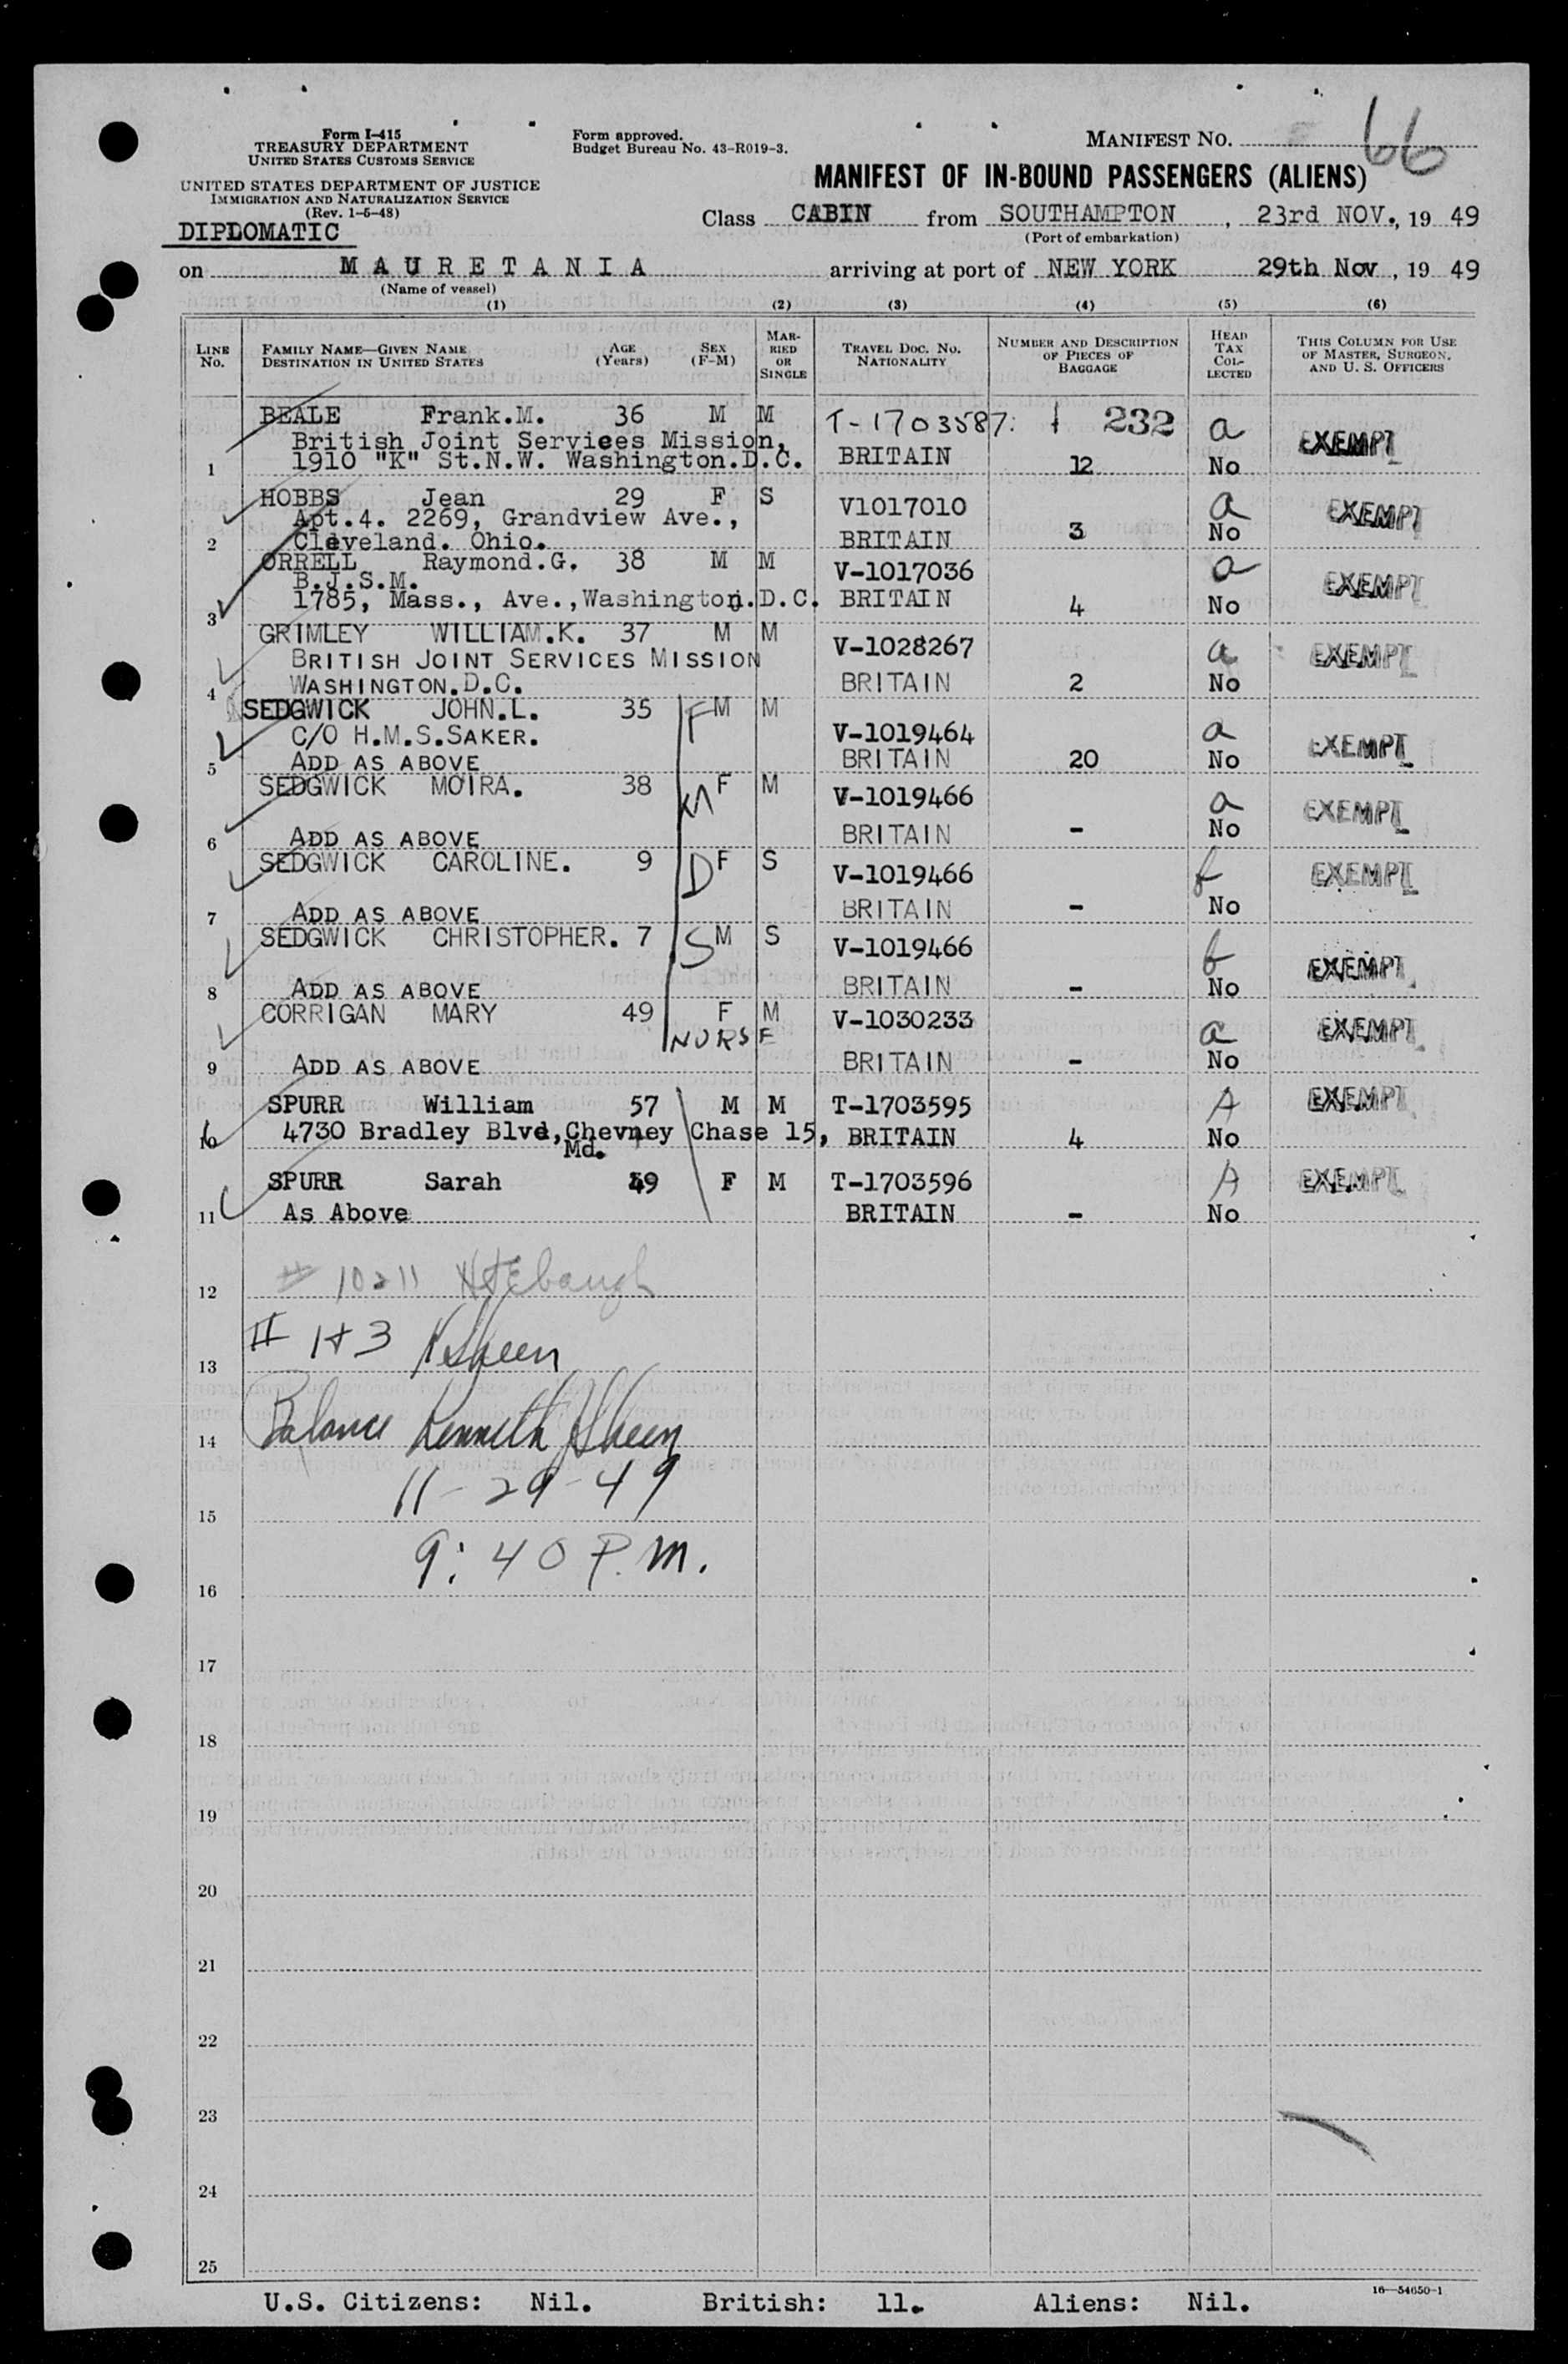 Form I-415
TREASURY DEPARTMENT
UNITED STATES CUSTOMS SERVICE
UNITED STATES DEPARTMENT OF JUSTICE
IMMIGRATION AND NATURALIZATION SERVICE
(Rev. 1-5-48)
DIPLOMATIC
Form approved.
Budget Bureau No. 43-R019-3.
MANIFEST NO. 66
MANIFEST OF IN-BOUND PASSENGERS (ALIENS)
Class CABIN from SOUTHAMPTON, 23rd NOV., 19 49
(Port of embarkation)
on MAURETANIA arriving at port of NEW YORK 29th Nov, 19 49
(Name of vessel)
(1) (2) (3) (4) (5) (6)
LINE NO. FAMILY NAME—GIVEN NAME DESTINATION IN UNITED STATES AGE (Years) SEX (F-M) MARRIED OR SINGLE TRAVEL DOC. NO. NATIONALITY NUMBER AND DESCRIPTION OF PIECES OF BAGGAGE HEAD TAX COLLECTED THIS COLUMN FOR USE OF MASTER, SURGEON, AND U. S. OFFICERS
BEALE Frank.M. 36 M M T-1703587. 232 a EXEMPT
British Joint Services Mission,
1 1910 "K" St.N.W. Washington.D.C. BRITAIN 12 No
HOBBS Jean 29 F S V1017010 a EXEMPT
Apt.4. 2269, Grandview Ave.,
2 Cleveland. Ohio. BRITAIN 3 No
ORRELL Raymond.G. 38 M M V-1017036 a EXEMPT
B.J.S.M.
3 1785, Mass., Ave.,Washington.D.C. BRITAIN 4 No
GRIMLEY WILLIAM.K. 37 M M V-1028267 a EXEMPT
BRITISH JOINT SERVICES MISSION
4 WASHINGTON.D.C. BRITAIN 2 No
SEDGWICK JOHN.L. 35 F M M V-1019464 a EXEMPT
C/O H.M.S.SAKER.
5 ADD AS ABOVE BRITAIN 20 No
SEDGWICK MOIRA. 38 M F M V-1019466 a EXEMPT
6 ADD AS ABOVE BRITAIN - No
SEDGWICK CAROLINE. 9 D F S V-1019466 f EXEMPT
7 ADD AS ABOVE BRITAIN - No
SEDGWICK CHRISTOPHER. 7 S M S V-1019466 f EXEMPT
8 ADD AS ABOVE BRITAIN - No
CORRIGAN MARY 49 F M V-1030233 a EXEMPT
NURSE
9 ADD AS ABOVE BRITAIN - No
SPURR William 57 M M T-1703595 A EXEMPT
10 4730 Bradley Blvd,Chevney Chase 15, BRITAIN 4 No
Md.
SPURR Sarah 59 F M T-1703596 A EXEMPT
11 As Above BRITAIN - No
12 # 10 & 11
13 # 1 & 3 K Sheen
14 Balance Kenneth Sheen
15 11-29-49
16 9:40 P.M.
17
18
19
20
21
22
23
24
25
16—54650-1
U.S. Citizens: Nil. British: 11. Aliens: Nil.